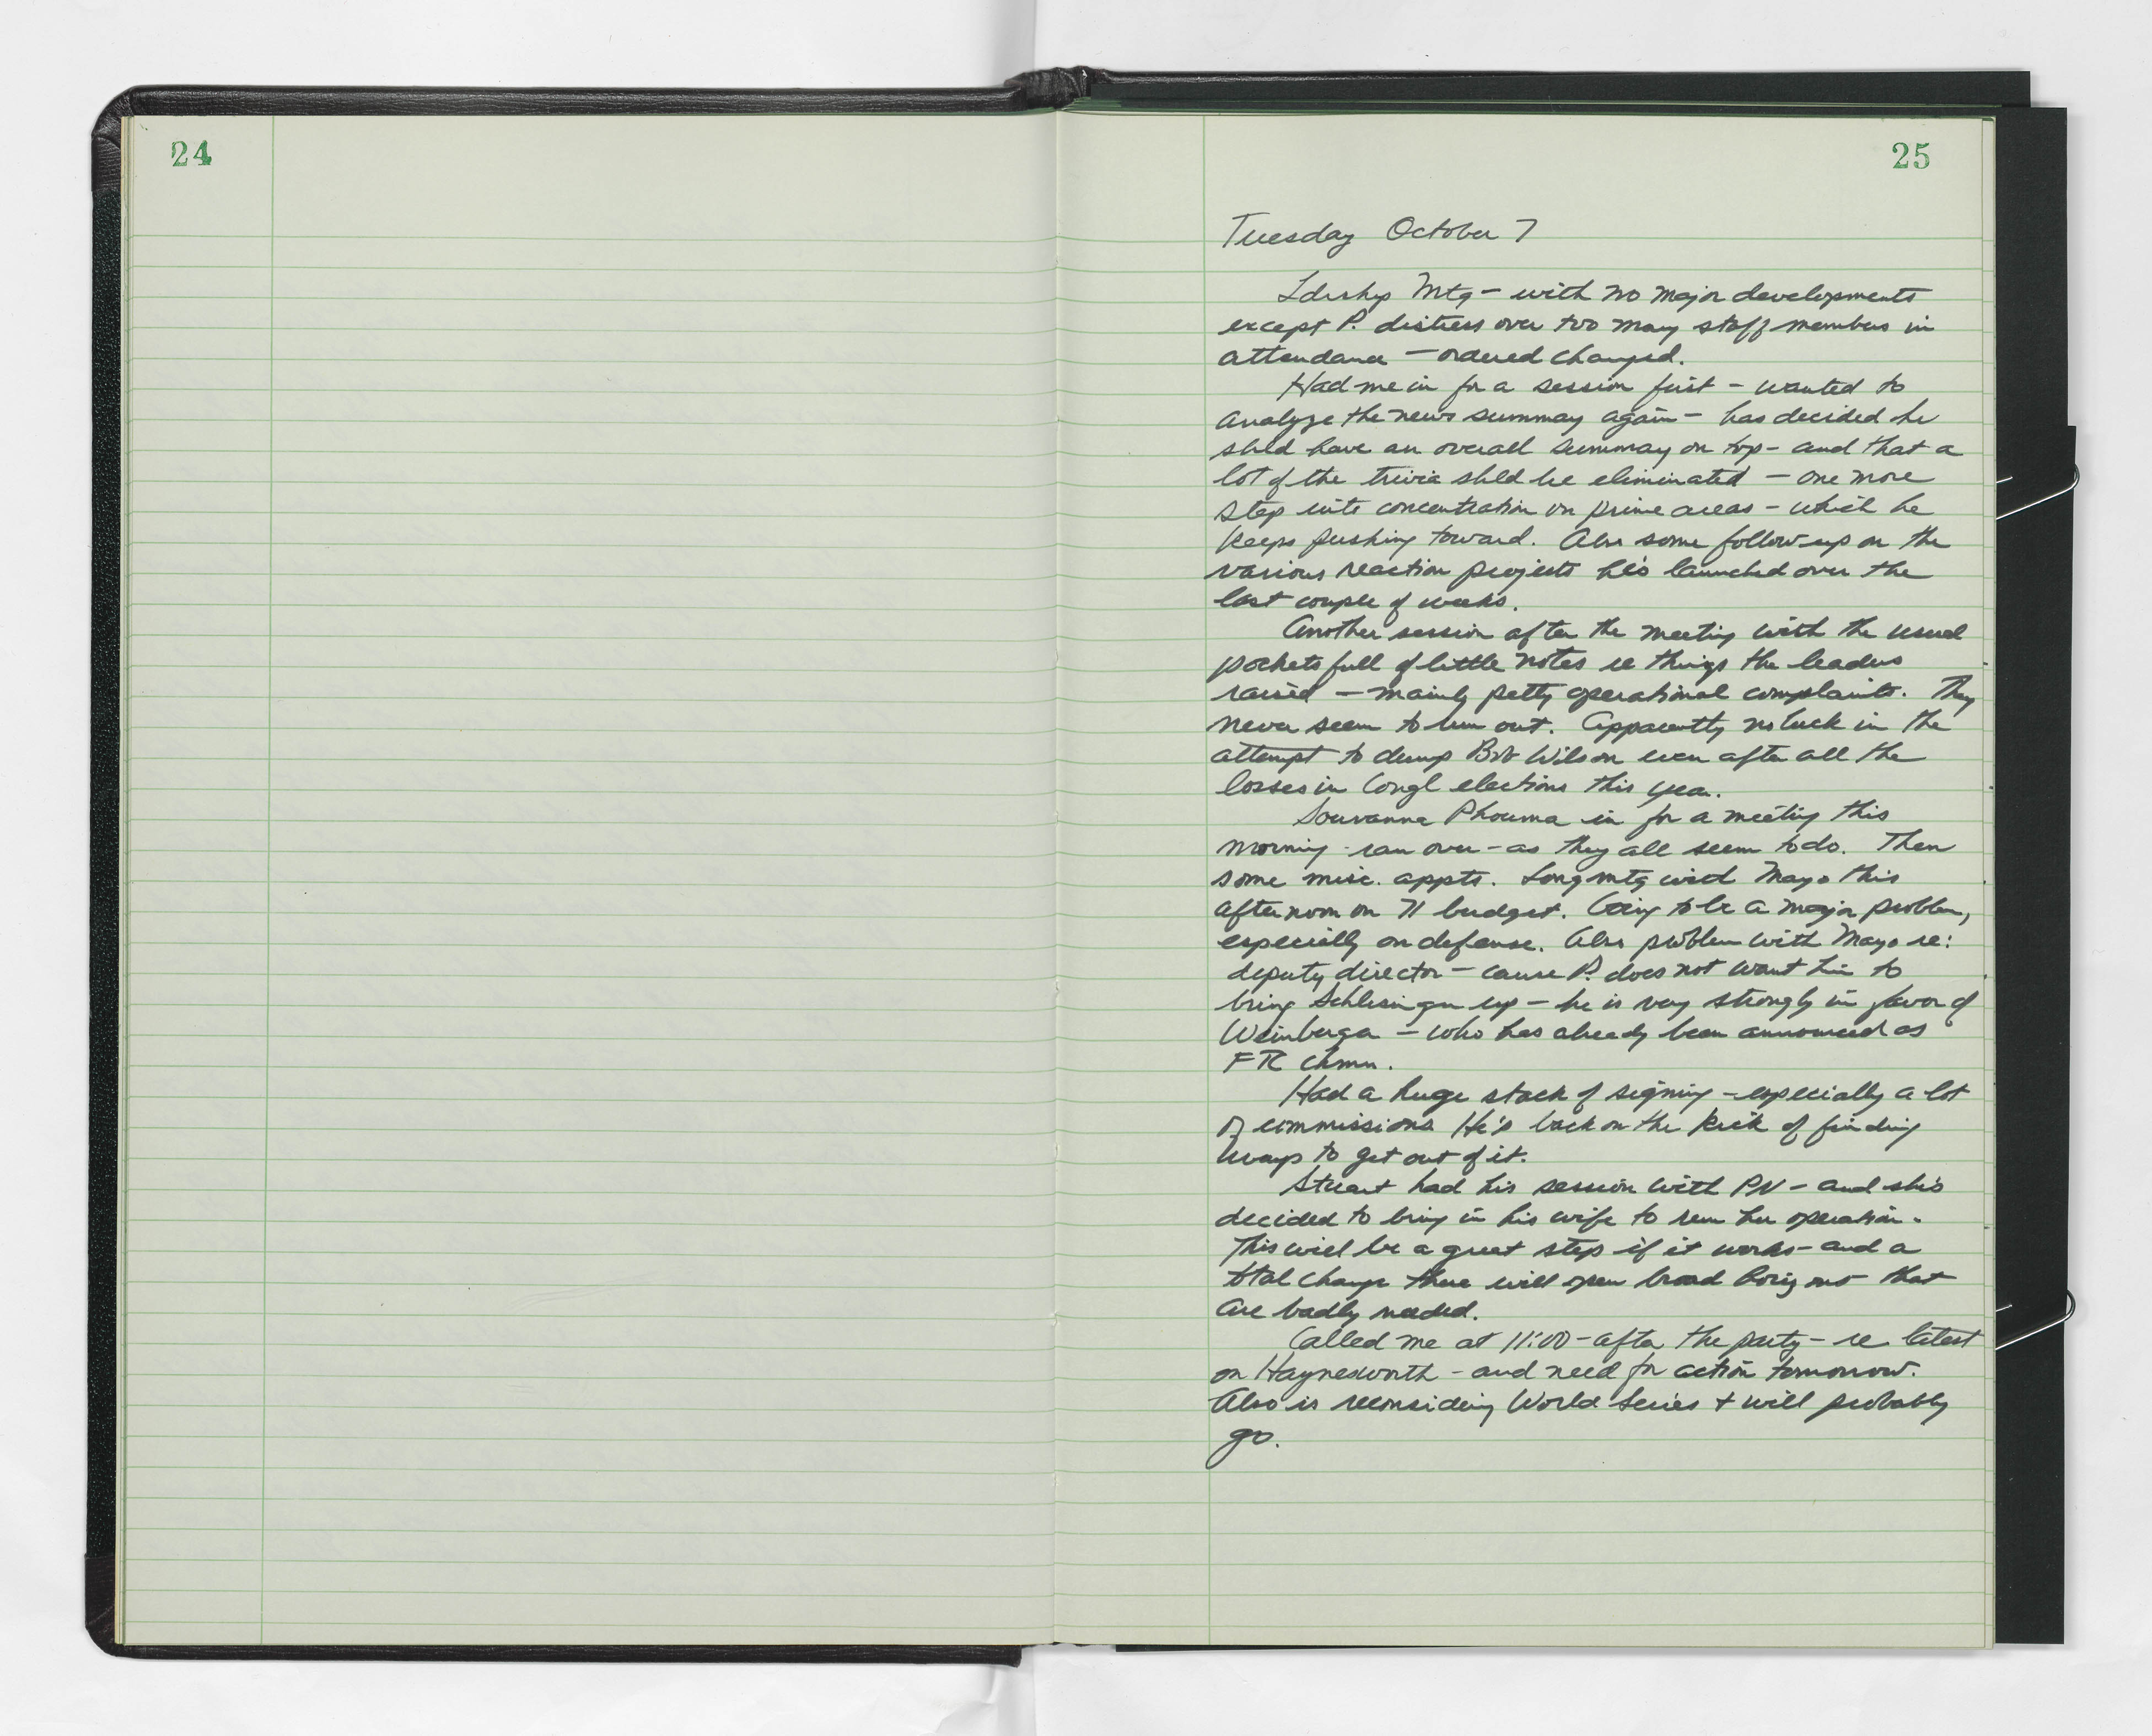 24
25
Tuesday October 7
Ldrshp Mtg - with no major developments
except P. distress over too many staff members in
attendance - ordered changed.
Had me in for a session first - wanted to
analyze the news summary again - has decided he
shld have an overall summary on top - and that a
lot of the trivia shld be eliminated - one more
step into concentration on prime areas - which he
keeps pushing toward. Also some follow-up on the
various reaction projects he's launched over the
last couple of weeks.
Another session after the meeting with the usual
pockets full of little notes re things the leaders
raised - mainly petty operational complaints. They
never seem to run out. Apparently no luck in the
attempt to dump Bob Wilson even after all the
losses in Congl elections this year.
Souvanna Phouma in for a meeting this
morning - ran over - as they all seem to do. Then
some misc. appts. Long mtg with Mayo this
afternoon on 71 budget. Going to be a major problem,
especially on defense. Also problem with Mayo re:
deputy director - cause P. does not want him to
bring Schlesinger up - he is very strongly in favor of
Weinberger - who has already been announced as
FTC chmn.
Had a huge stack of signing - especially a lot
of commissions. He's back on the kick of finding
ways to get out of it.
Stuart had his session with PN - and she's
decided to bring in his wife to run her operation.
This will be a great step if it works - and a
total change there will open broad horizons that
are badly needed.
Called me at 11:00 - after the party - re latest
on Haynesworth - and need for action tomorrow.
Also is reconsidering World Series + will probably
go.